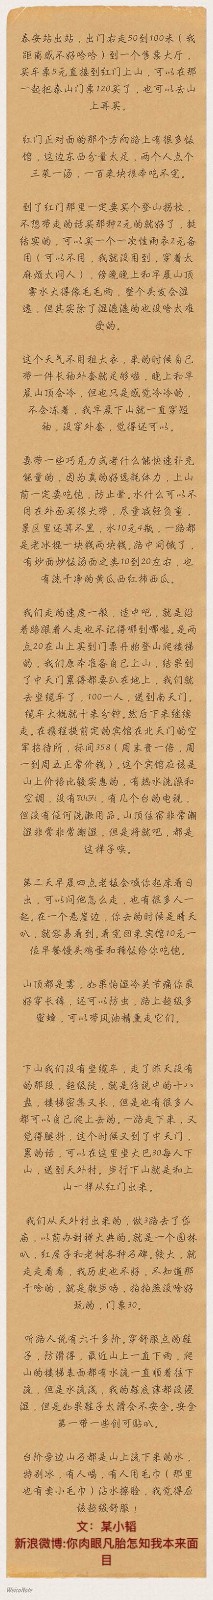 泰安站出站，出门右走50到100米（我
距离感不好哈哈）到一个售票大厅，
买车票5元直接到红门上山，可以在那
一起把泰山门票120买了，也可以去山
上再买。
红门正对面的那个方向路上有很多饭
馆，这边东西分量太足，两个人点个
三菜一汤，一百来块根本吃不完。
到了红门那里一定要买个登山拐杖，
不想带走的话买那种2元的就好了，挺
结实的，可以买一个一次性雨衣2元备
用（可以不用，我就没用到，穿着太
麻烦太闷人），傍晚晚上和早晨山顶
雾水大得像毛毛雨，整个头发会湿
透，但其实除了湿漉漉的也没啥太难
受的。
这个天气不用租大衣，来的时候自己
带一件长袖外套就足够啦，晚上和早
晨山顶会冷，但也只是感觉冷冷的，
不会冻着，我早晨下山就一直穿短
袖，没穿外套，觉得还可以。
要带一些巧克力或者什么能快速补充
能量的，因为真的好消耗体力，上山
前一定要吃饱，防止晕。水什么可以不
用在外面买很大带，尽量减轻负重，
景区里还算不黑，水10元4瓶，一路都
是老冰棍一块钱两块钱，路中间饿了，
有炒面炒饭汤面之类10到20左右，也
有洗干净的黄瓜西红柿西瓜。
我们走的速度一般，适中吧，就是沿
着路跟着人走也不记得哪到哪啦。是两
点20在山上买到门票开始登山爬楼梯
的，我们原本准备自己上山，结果到
了中天门累得都要趴在地上，我们就
去坐缆车了，100一人，送到南天门。
缆车大概就十来分钟。然后下来继续
走。在携程提前定的宾馆在北天门的空
军招待所，标间358（周末贵一倍，周
一到周五正常价钱）。这个宾馆应该是
山上价格比较实惠的，有热水洗澡和
空调，没有WiFi，有几个台的电视，
但没有任何洗漱用品。山顶住宿非常潮
湿非常非常潮湿，但是将就吧，都是
这样子哒。
第二天早晨四点老板会喊你起床看日
出，可以问他怎么走，也有很多人一
起，在一个悬崖边，你去的时候是晴天
叭，就容易看到。看完回来宾馆10元一
位早餐馒头鸡蛋和稀饭给你吃。
山顶都是雾，如果怕湿冷关节痛你最
好穿长裤，还可以防虫，路上超级多
蜜蜂，可以带风油精熏走它们。
下山我们没有坐缆车，走了昨天没有
的那段，超级陡，就是传说中的十八
盘，楼梯密集又长，但是也有很多人
都可以自己爬上去的。一路走下来，又
觉得腿抖，这个时候又到了中天门，
累的话，可以在这里坐大巴30每人下
山，送到天外村。步行下山就是和上
山一样从红门出来。
我们从天外村出来的，做3路去了岱
庙，以前办封禅大典的，就是一个园林
叭，红房子和老树各种石碑，候大，就
走走看看，我历史也不好，不知道那
干啥的，就是散步咯，拍拍照没啥好
玩的，门票30。
听路人说有六千多阶，穿舒服点的鞋
子，防滑得，最近山上一直下雨，爬
山的楼梯表面都有水流一直顺着往下
流，但是水流浅，我的鞋底薄都没漫
湿，但是如果鞋子太滑会不安全。安全
第一带一些创可贴叭。
台阶旁边山石都是山上流下来的水，
特别冰，有人喝，有人用毛巾（那里
也有卖小毛巾）沾水擦脸，我觉得应
该超级舒服！
文：某小韬
新浪微博:你肉眼凡胎怎知我本来面
目